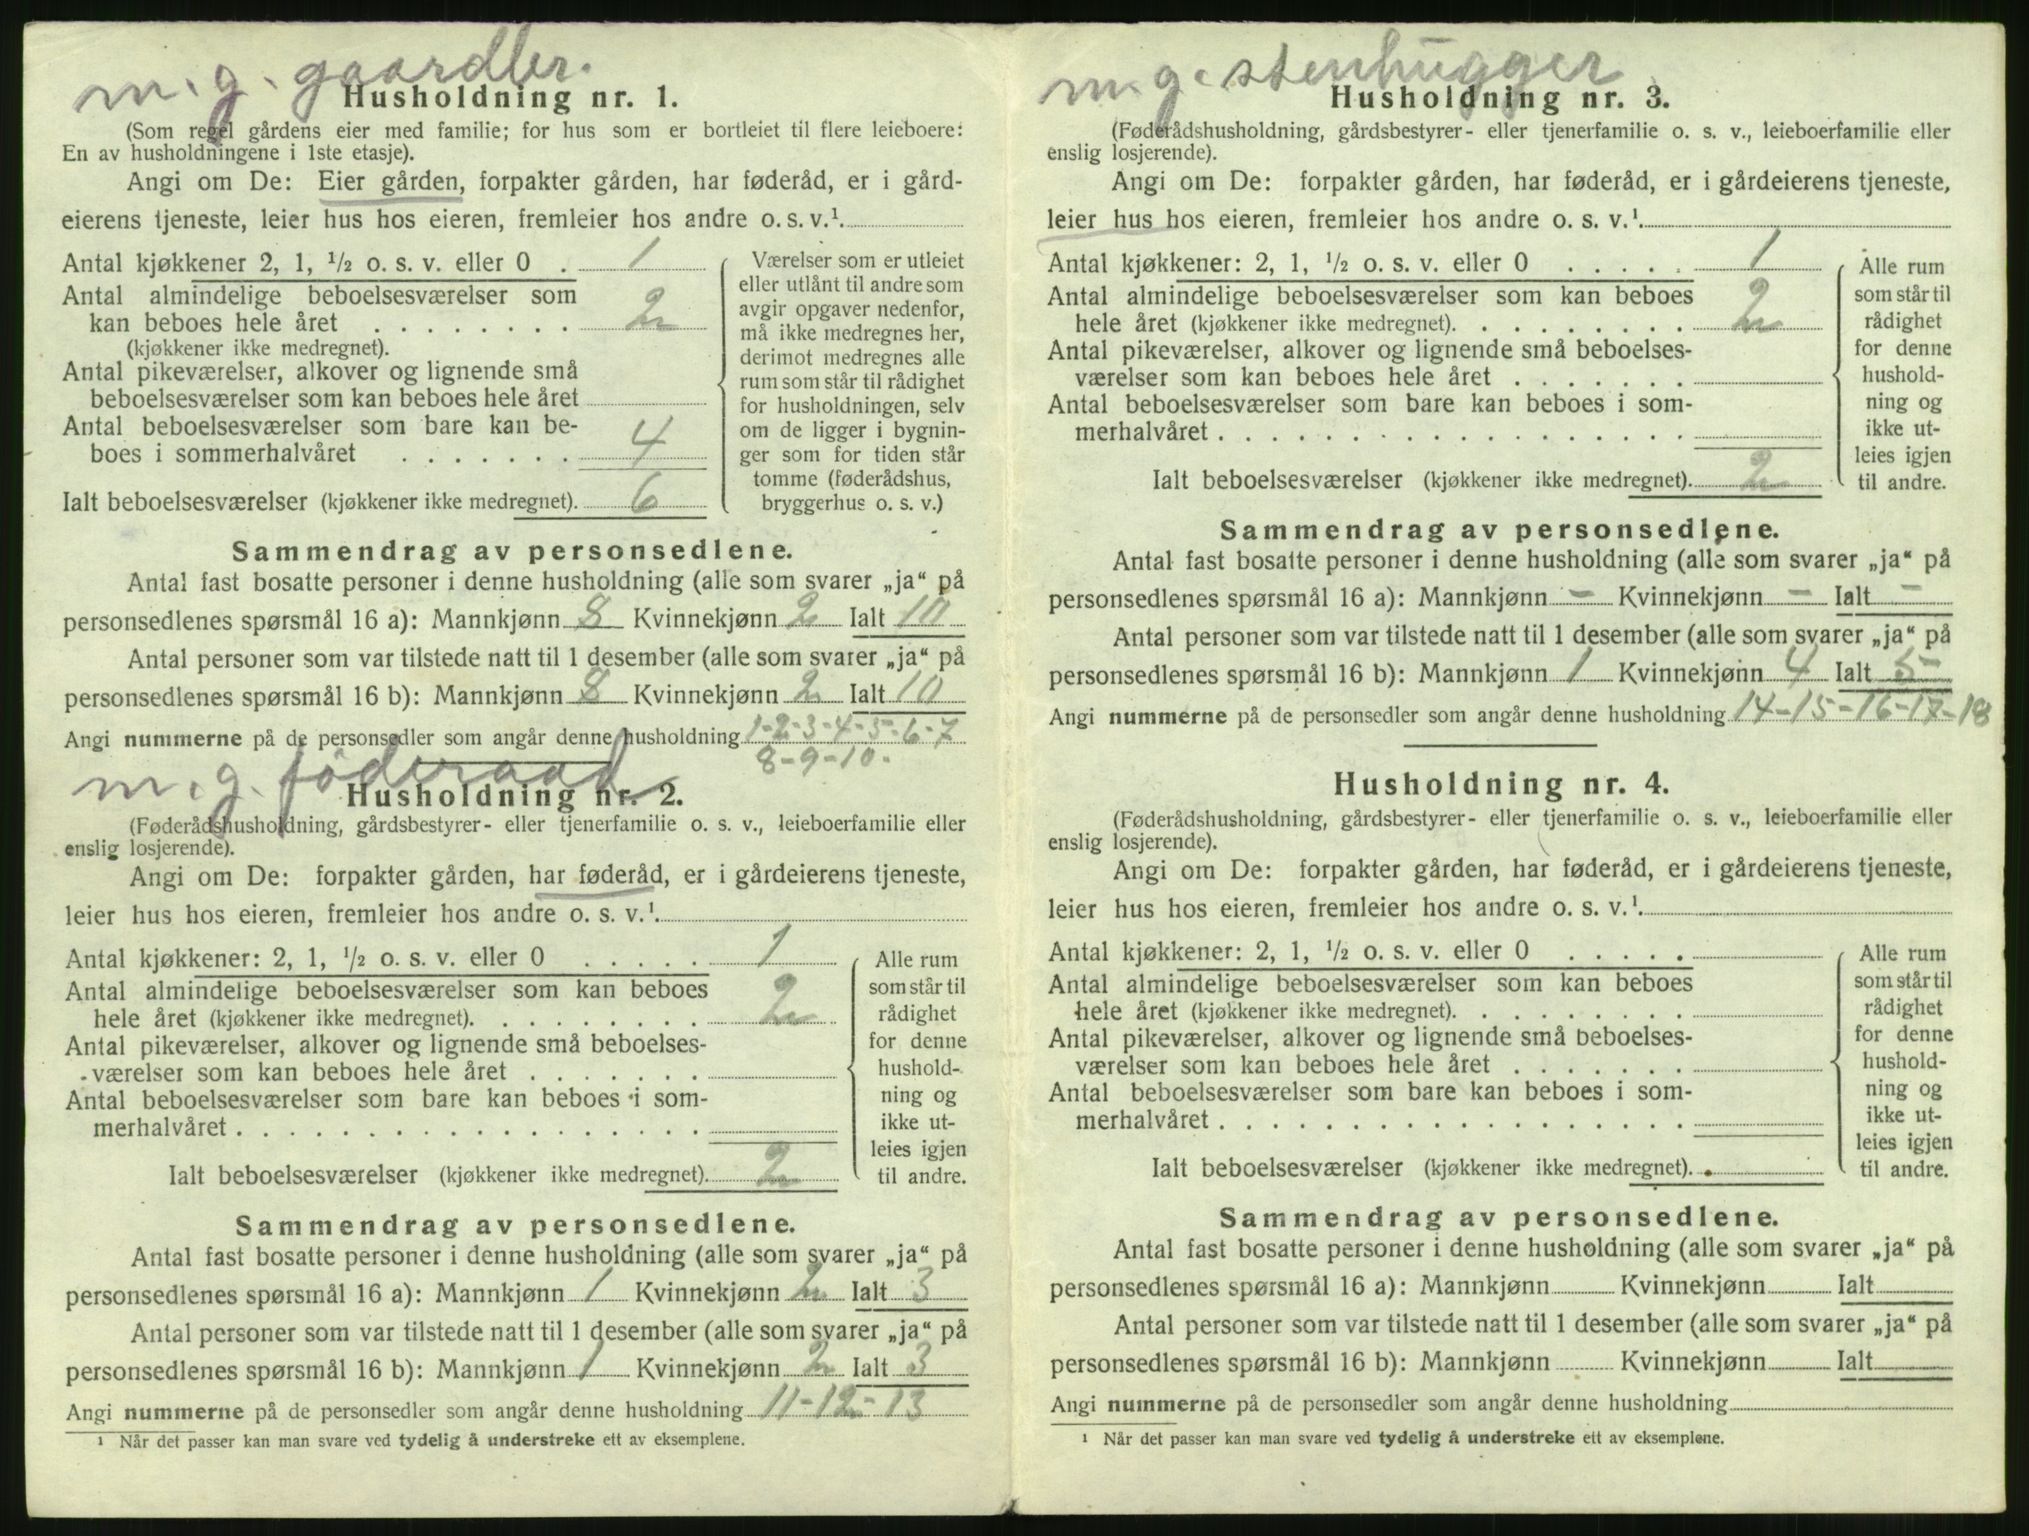 m. g. gaardbr.
Husholdning nr. 1.
(Som regel gårdens eier med familie; for hus som er bortleiet til flere leieboere:
En av husholdningene i 1ste etasje).
Angi om De: Eier gården, forpakter gården, har føderåd, er i gård-
eierens tjeneste, leier hus hos eieren, fremleier hos andre o. s. v.¹.
Antal kjøkkener 2, 1, ½ o. s. v. eller 0 . 1
Antal almindelige beboelsesværelser som
kan beboes hele året . . . . . . . . 2
(kjøkkener ikke medregnet).
Antal pikeværelser, alkover og lignende små
beboelsesværelser som kan beboes hele året
Antal beboelsesværelser som bare kan be-
boes i sommerhalvåret . . . . . . . 4
Ialt beboelsesværelser (kjøkkener ikke medregnet). 6
Værelser som er utleiet
eller utlånt til andre som
avgir opgaver nedenfor,
må ikke medregnes her,
derimot medregnes alle
rum som står til rådighet
for husholdningen, selv
om de ligger i bygnin-
ger som for tiden står
tomme (føderådshus,
bryggerhus o. s. v.)
Sammendrag av personsedlene.
Antal fast bosatte personer i denne husholdning (alle som svarer „ja“ på
personsedlenes spørsmål 16 a): Mannkjønn 8 Kvinnekjønn 2 Ialt 10
Antal personer som var tilstede natt til 1 desember (alle som svarer „ja“ på
personsedlenes spørsmål 16 b): Mannkjønn 8 Kvinnekjønn 2 Ialt 10
Angi nummerne på de personsedler som angår denne husholdning 1-2-3-4-5-6-7
8-9-10-
m. g. føderaad
Husholdning nr. 2.
(Føderådshusholdning, gårdsbestyrer- eller tjenerfamilie o. s. v., leieboerfamilie eller
enslig losjerende).
Angi om De: forpakter gården, har føderåd, er i gårdeierens tjeneste,
leier hus hos eieren, fremleier hos andre o. s. v.¹.
Antal kjøkkener: 2, 1, ½ o. s. v. eller 0 . . . . . 1
Antal almindelige beboelsesværelser som kan beboes
hele året (kjøkkener ikke medregnet). . . . . . . . . 2
Antal pikeværelser, alkover og lignende små beboelses-
værelser som kan beboes hele året . . . . . . .
Antal beboelsesværelser som bare kan beboes i som-
merhalvåret . . . . . . . . . . . . . . . . . .
Ialt beboelsesværelser (kjøkkener ikke medregnet). 2
Alle rum
som står til
rådighet
for denne
hushold-
ning og
ikke ut-
leies igjen
til andre.
Sammendrag av personsedlene.
Antal fast bosatte personer i denne husholdning (alle som svarer „ja“ på
personsedlenes spørsmål 16 a): Mannkjønn 1 Kvinnekjønn 2 Ialt 3
Antal personer som var tilstede natt til 1 desember (alle som svarer „ja“ på
personsedlenes spørsmål 16 b): Mannkjønn 1 Kvinnekjønn 2 Ialt 3
Angi nummerne på de personsedler som angår denne husholdning 11-12-13
¹ Når det passer kan man svare ved tydelig å understreke ett av eksemplene.
m. g. stenhugger
Husholdning nr. 3.
(Føderådshusholdning, gårdsbestyrer- eller tjenerfamilie o. s. v., leieboerfamilie eller
enslig losjerende).
Angi om De: forpakter gården, har føderåd, er i gårdeierens tjeneste,
leier hus hos eieren, fremleier hos andre o. s. v.¹.
Antal kjøkkener: 2, 1, ½ o. s. v. eller 0 . . . . . 1
Antal almindelige beboelsesværelser som kan beboes
hele året (kjøkkener ikke medregnet). . . . . . . . . 2
Antal pikeværelser, alkover og lignende små beboelses-
værelser som kan beboes hele året . . . . . . .
Antal beboelsesværelser som bare kan beboes i som-
merhalvåret . . . . . . . . . . . . . . . . . .
Ialt beboelsesværelser (kjøkkener ikke medregnet). 2
Alle rum
som står til
rådighet
for denne
hushold-
ning og
ikke ut-
leies igjen
til andre.
Sammendrag av personsedlene.
Antal fast bosatte personer i denne husholdning (alle som svarer „ja“ på
personsedlenes spørsmål 16 a): Mannkjønn - Kvinnekjønn - Ialt -
Antal personer som var tilstede natt til 1 desember (alle som svarer „ja“ på
personsedlenes spørsmål 16 b): Mannkjønn 1 Kvinnekjønn 4 Ialt 5
Angi nummerne på de personsedler som angår denne husholdning 14-15-16-17-18
Husholdning nr. 4.
(Føderådshusholdning, gårdsbestyrer- eller tjenerfamilie o. s. v., leieboerfamilie eller
enslig losjerende).
Angi om De: forpakter gården, har føderåd, er i gårdeierens tjeneste,
leier hus hos eieren, fremleier hos andre o. s. v.¹.
Antal kjøkkener: 2, 1, ½ o. s. v. eller 0 . . . . .
Antal almindelige beboelsesværelser som kan beboes
hele året (kjøkkener ikke medregnet). . . . . . . . .
Antal pikeværelser, alkover og lignende små beboelses-
værelser som kan beboes hele året . . . . . . .
Antal beboelsesværelser som bare kan beboes i som-
merhalvåret . . . . . . . . . . . . . . . . . .
Ialt beboelsesværelser (kjøkkener ikke medregnet).
Alle rum
som står til
rådighet
for denne
hushold-
ning og
ikke ut-
leies igjen
til andre.
Sammendrag av personsedlene.
Antal fast bosatte personer i denne husholdning (alle som svarer „ja“ på
personsedlenes spørsmål 16 a): Mannkjønn Kvinnekjønn Ialt
Antal personer som var tilstede natt til 1 desember (alle som svarer „ja“ på
personsedlenes spørsmål 16 b): Mannkjønn Kvinnekjønn Ialt
Angi nummerne på de personsedler som angår denne husholdning
¹ Når det passer kan man svare ved tydelig å understreke ett av eksemplene.